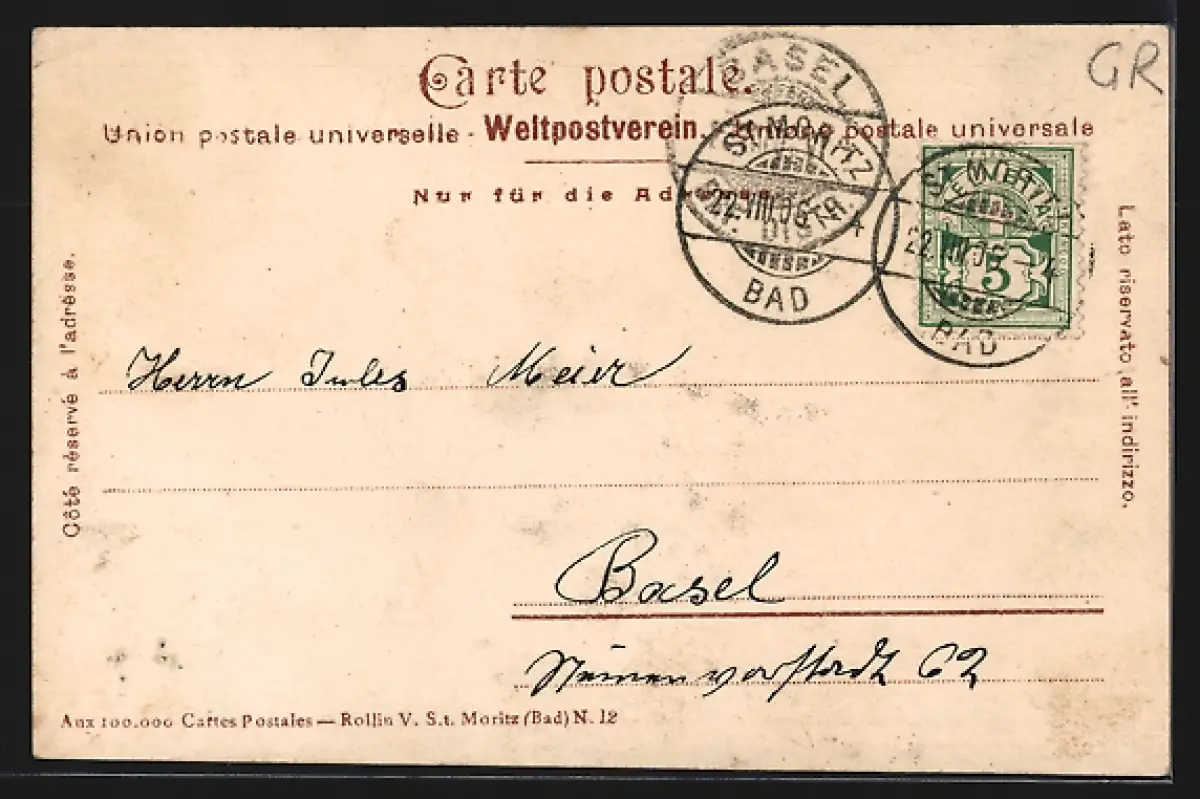 Carte postale.
GR
Union postale universelle - Weltpostverein. Unione postale universale
Nur für die Adresse
BASEL
DISTR.
ST. MORITZ
22.VIII.06
BAD
ST. MORITZ
22.VIII.06
BAD
5
Côté réservé à l'adrèsse.
Lato riservato all' indirizzo.
Herrn Jules Meier
Basel
Steinenvorstadt 62
Aux 100.000 Cartes Postales — Rollin V. S.t. Moritz (Bad) N. 12